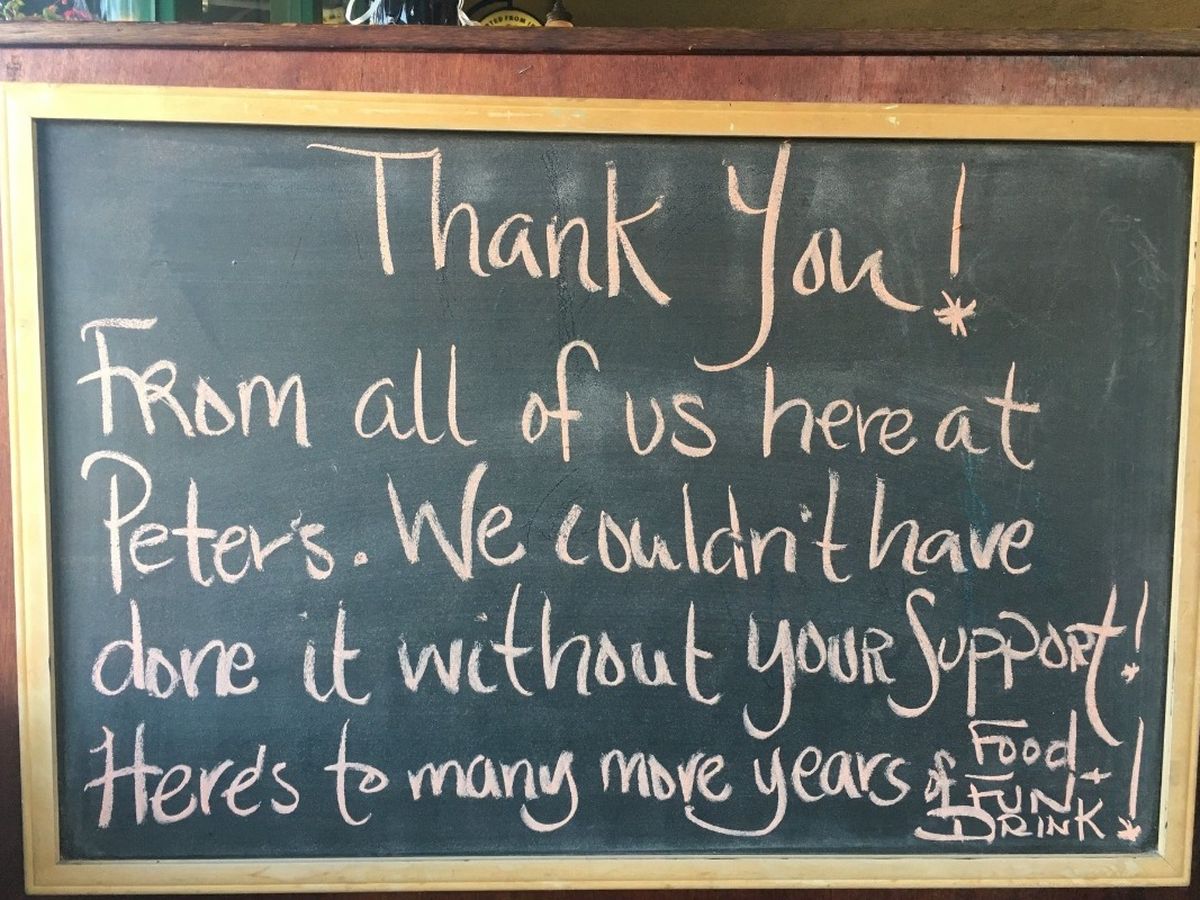 TED FROM
Thank You!
From all of us here at
Peter's. We couldn't have
done it without your Support!
Here's to many more years of Food
+ FUN
DRINK!